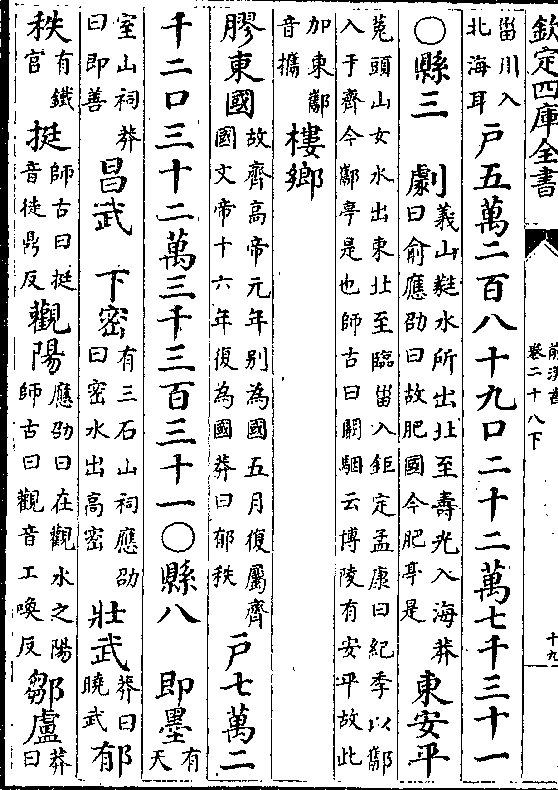 欽定四庫全書
前漢書
卷二十八下
十九
甾川入
北海耳
戸五萬二百八十九口二十二萬七千三十一
○縣三　劇
義山蕤水所出北至壽光入海莽
曰俞應劭曰故肥國今肥亭是
東安平
菟頭山女水出東北至臨甾入鉅定孟康曰紀季以酅
入于齊今酅亭是也師古曰闞駰云博陵有安平故此
加東酅
音攜
樓鄉
膠東國
故齊高帝元年别為國五月復屬齊
國文帝十六年復為國莽曰郁秩
戸七萬二
千二口三十二萬三千三百三十一○縣八　即墨
有
天
室山祠莽
曰即善
昌武　下密
有三石山祠應劭
曰密水出高密
壯武
莽曰
曉武
郁
秩
有鐵
官
挺
師古曰挺
音徒鼎反
觀陽
應劭曰在觀水之陽
師古曰觀音工喚反
鄒盧
莽
曰